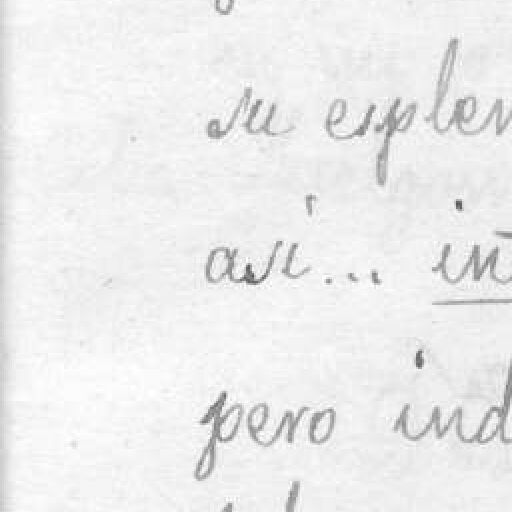 su esplen
así... int
pero ind